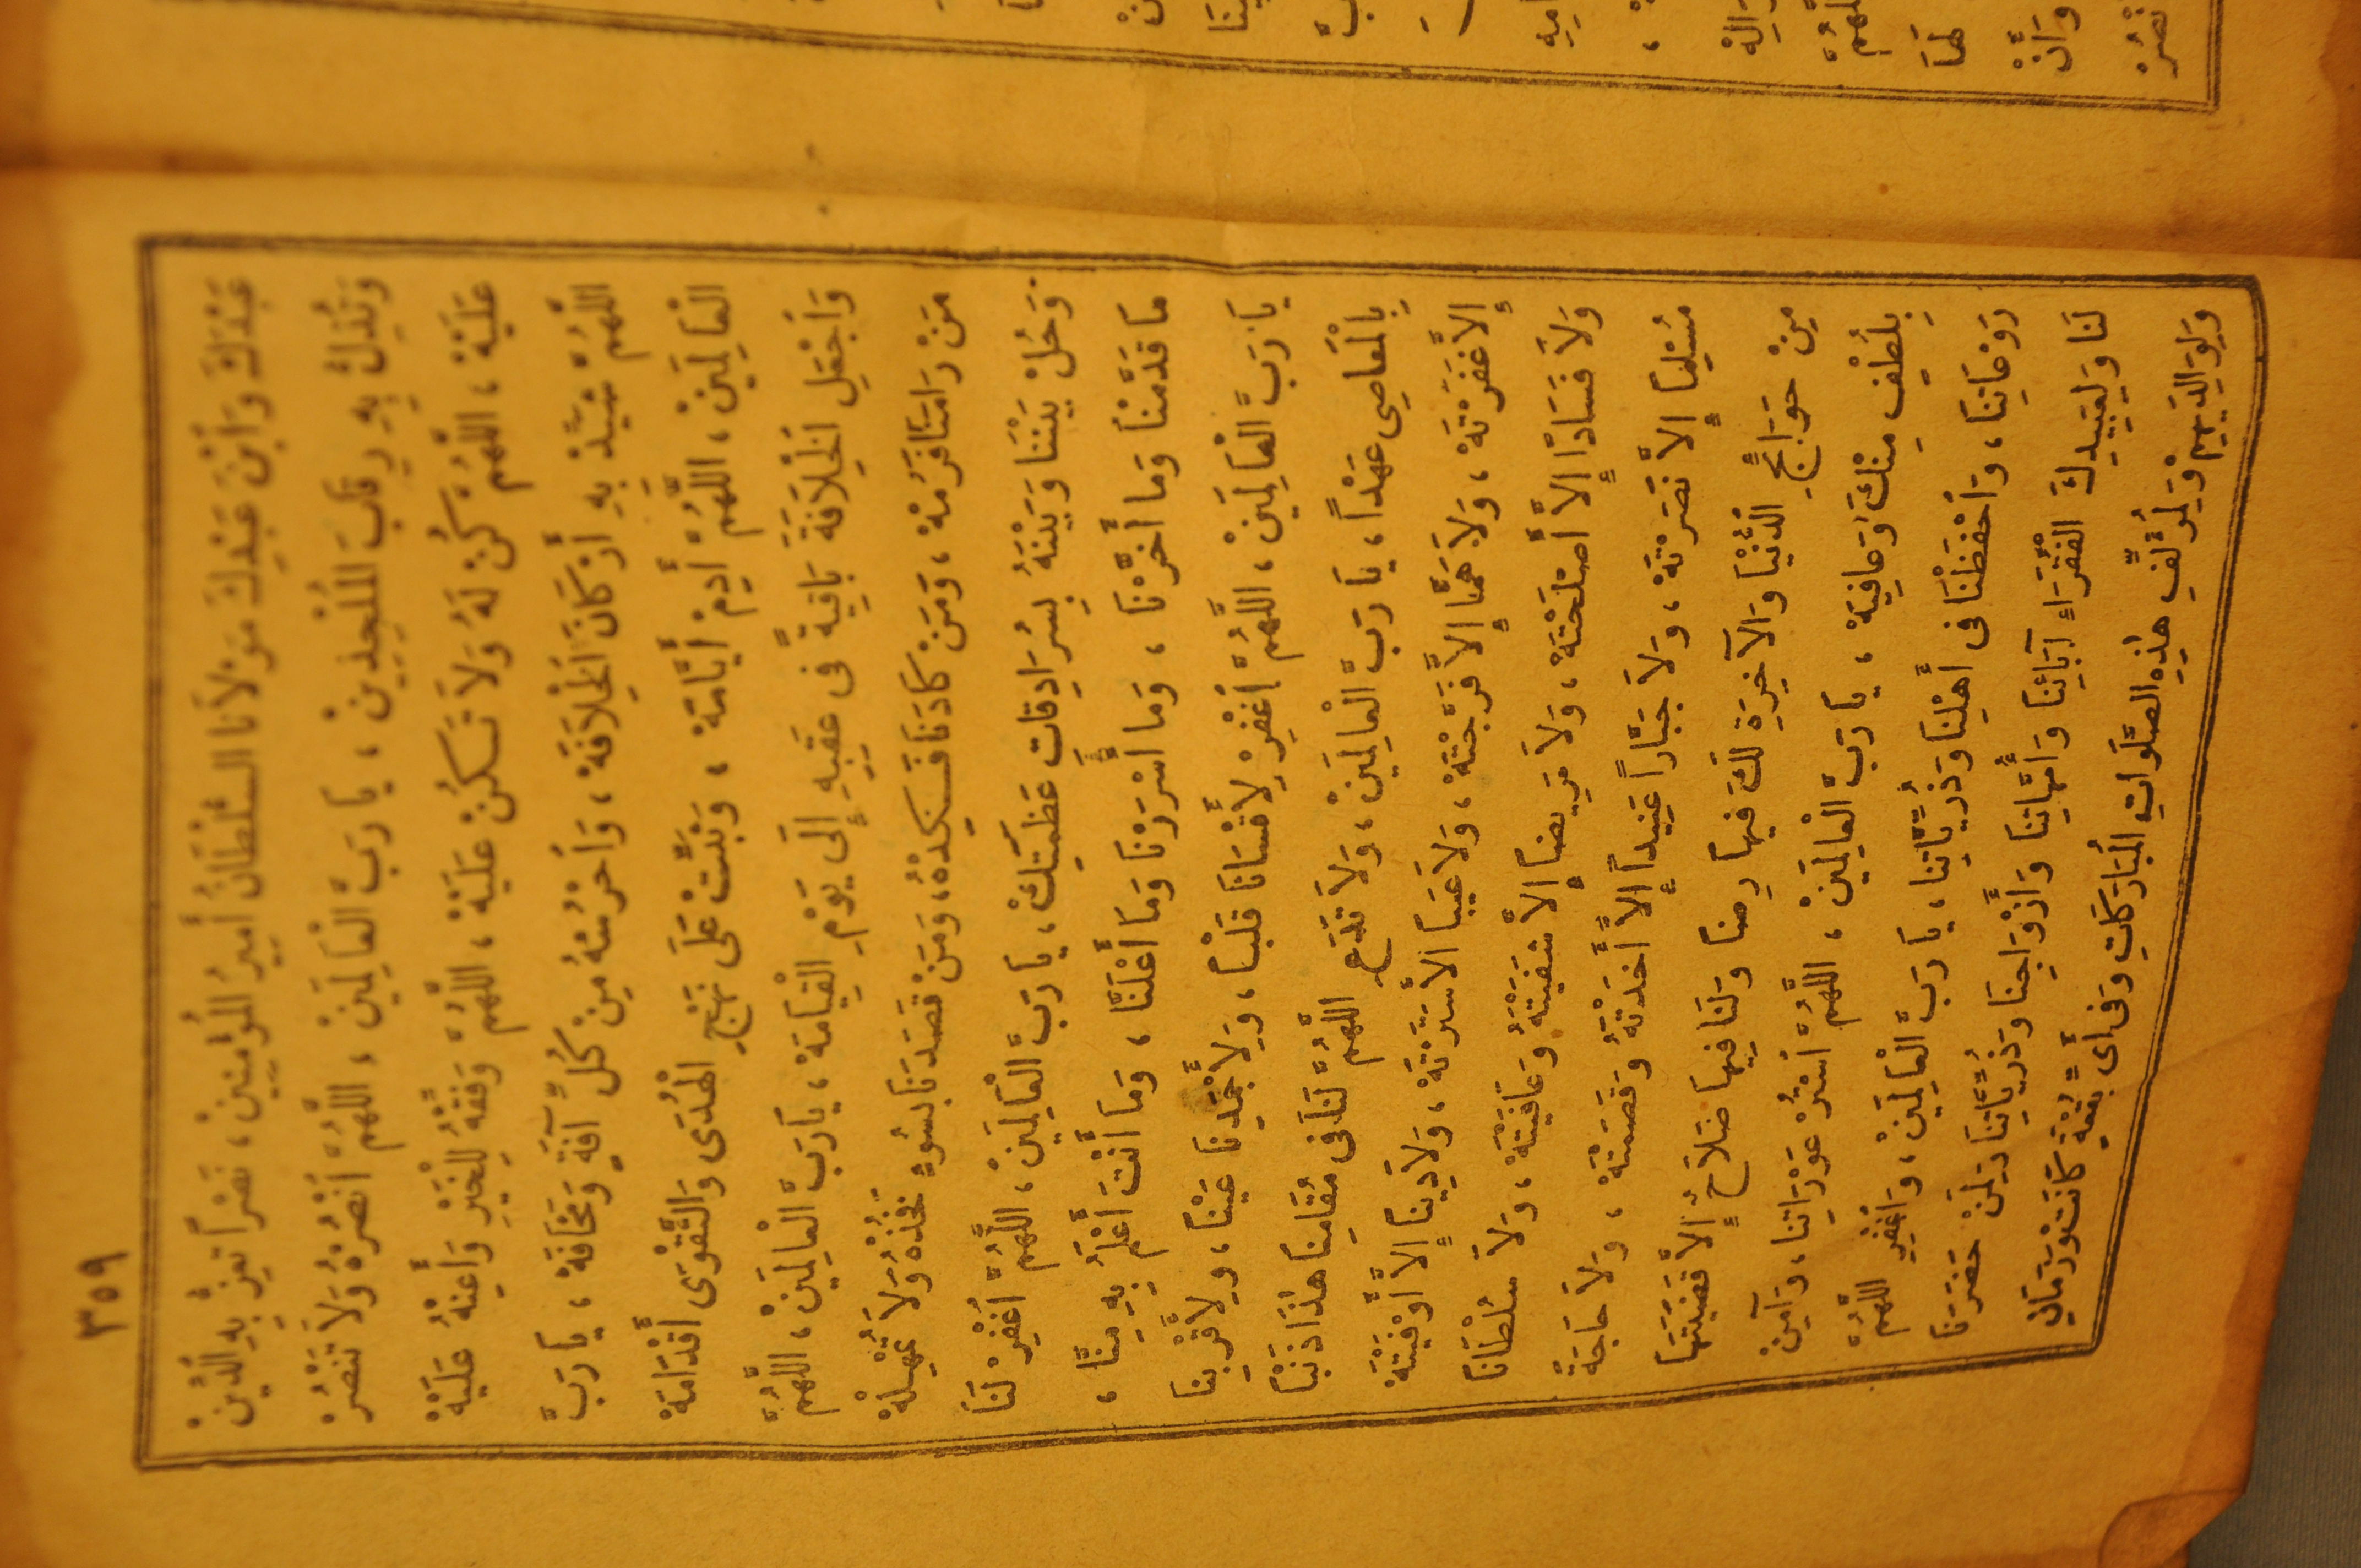 ٣٥٩
عَبْدَكَ وَابْنَ عَبْدِكَ مَوْلَانَا السُّلْطَانُ أَمِيرُ الْمُؤْمِنِينْ ، نَصْراً تُعِزُّ بِهِ الدِّينْ
وَتُذِلُّ بِهِ رِقَابَ الْمُلْحِدِينْ ، يَا رَبَّ الْعَالَمِينْ ، اللَّهُمَّ انْصُرْهُ وَلَا تَنْصُرْ
عَلَيْهْ ، اللَّهُمَّ كُنْ لَهُ وَلَا تَكُنْ عَلَيْهْ ، اللَّهُمَّ وَفِّقْهُ لِلْخَيْرِ وَأَعِنْهُ عَلَيْهْ
اللَّهُمَّ شَيِّدْ بِهِ أَرْكَانَ الْخِلَافَهْ ، وَاحْرُسْهُ مِنْ كُلِّ آفَةٍ وَمَخَافَهْ ، يَا رَبَّ
الْعَالَمِينْ ، اللَّهُمَّ أَدِمْ أَيَّامَهْ ، وَثَبِّتْ عَلَى نَهْجِ الْهُدَى وَالتَّقْوَى أَقْدَامَهْ
وَاجْعَلِ الْخِلَافَةَ بَاقِيَةً فِى عَقِبِهِ إِلَى يَوْمِ الْقِيَامَهْ ، يَا رَبَّ الْعَالَمِينْ ، اللَّهُمَّ
مَنْ رَامَنَا فَرُمْهْ ، وَمَنْ كَادَنَا فَكِدْهُ ، وَمَنْ قَصَدَنَا بِسُوءٍ فَخُذْهُ وَلَا تُمْهِلْهْ
وَحُلْ بَيْنَنَا وَبَيْنَهُ بِسُرَادِقَاتِ عَظَمَتِكْ ، يَا رَبَّ الْعَالَمِينْ ، اللَّهُمَّ اغْفِرْ لَنَا
مَا قَدَّمْنَا وَمَا أَخَّرْنَا ، وَمَا أَسْرَرْنَا وَمَا أَعْلَنَّا ، وَمَا أَنْتَ أَعْلَمُ بِهِ مِنَّا ،
يَا رَبَّ الْعَالَمِينْ ، اللَّهُمَّ اغْفِرْ لِأَقْسَانَا قَلْبًا ، وَلِأَجْمَدِنَا عَيْنًا ، وَلِأَقْرَبِنَا
بِالْمَعَاصِى عَهْداً ، يَا رَبَّ الْعَالَمِينْ ، وَلَا تَدَعِ اللَّهُمَّ لَنَا فِى مَقَامِنَا هٰذَا ذَنْبًا
إِلَّا غَفَرْتَهْ ، وَلَا هَمًّا إِلَّا فَرَّجْتَهْ ، وَلَا عَيْبًا إِلَّا سَتَرْتَهْ ، وَلَا دَيْنًا إِلَّا أَوْفَيْتَهْ
وَلَا فَسَادًا إِلَّا أَصْلَحْتَهْ ، وَلَا مَرِيضًا إِلَّا شَفَيْتَهُ وَعَافَيْتَهْ ، وَلَا سُلْطَانًا
مُسْلِمًا إِلَّا نَصَرْتَهْ ، وَلَا جَبَّاراً عَنِيداً إِلَّا أَخَذْتَهُ وَقَصَمْتَهْ ، وَلَا حَاجَةً
مِنْ حَوَائِجِ الدُّنْيَا وَالْآخِرَةِ لَكَ فِيهَا رِضًا وَلَنَا فِيهَا صَلَاحٌ إِلَّا قَضَيْتَهَا
بِلُطْفٍ مِنْكَ وَعَافِيَهْ ، يَا رَبَّ الْعَالَمِينْ ، اللَّهُمَّ اسْتُرْ عَوْرَاتِنَا ، وَآمِنْ
رَوْعَاتِنَا ، وَاحْفَظْنَا فِى أَهْلِنَا وَذُرِّيَّاتِنَا ، يَا رَبَّ الْعَالَمِينْ ، وَاغْفِرِ اللَّهُمَّ
لَنَا وَلِعَبِيدِكَ الْفُقَرَاءِ آبَائِنَا وَأُمَّهَاتِنَا وَأَزْوَاجِنَا وَذُرِّيَّاتِنَا وَلِمَنْ حَضَرَنَا
وَلِوَالِدَيْهِمْ وَلِمُؤَلِّفِ هٰذِهِ الصَّلَوَاتِ الْمُبَارَكَاتِ وَفِى أَىِّ بُقْعَةٍ كَانَتْ وَزَمَانِ